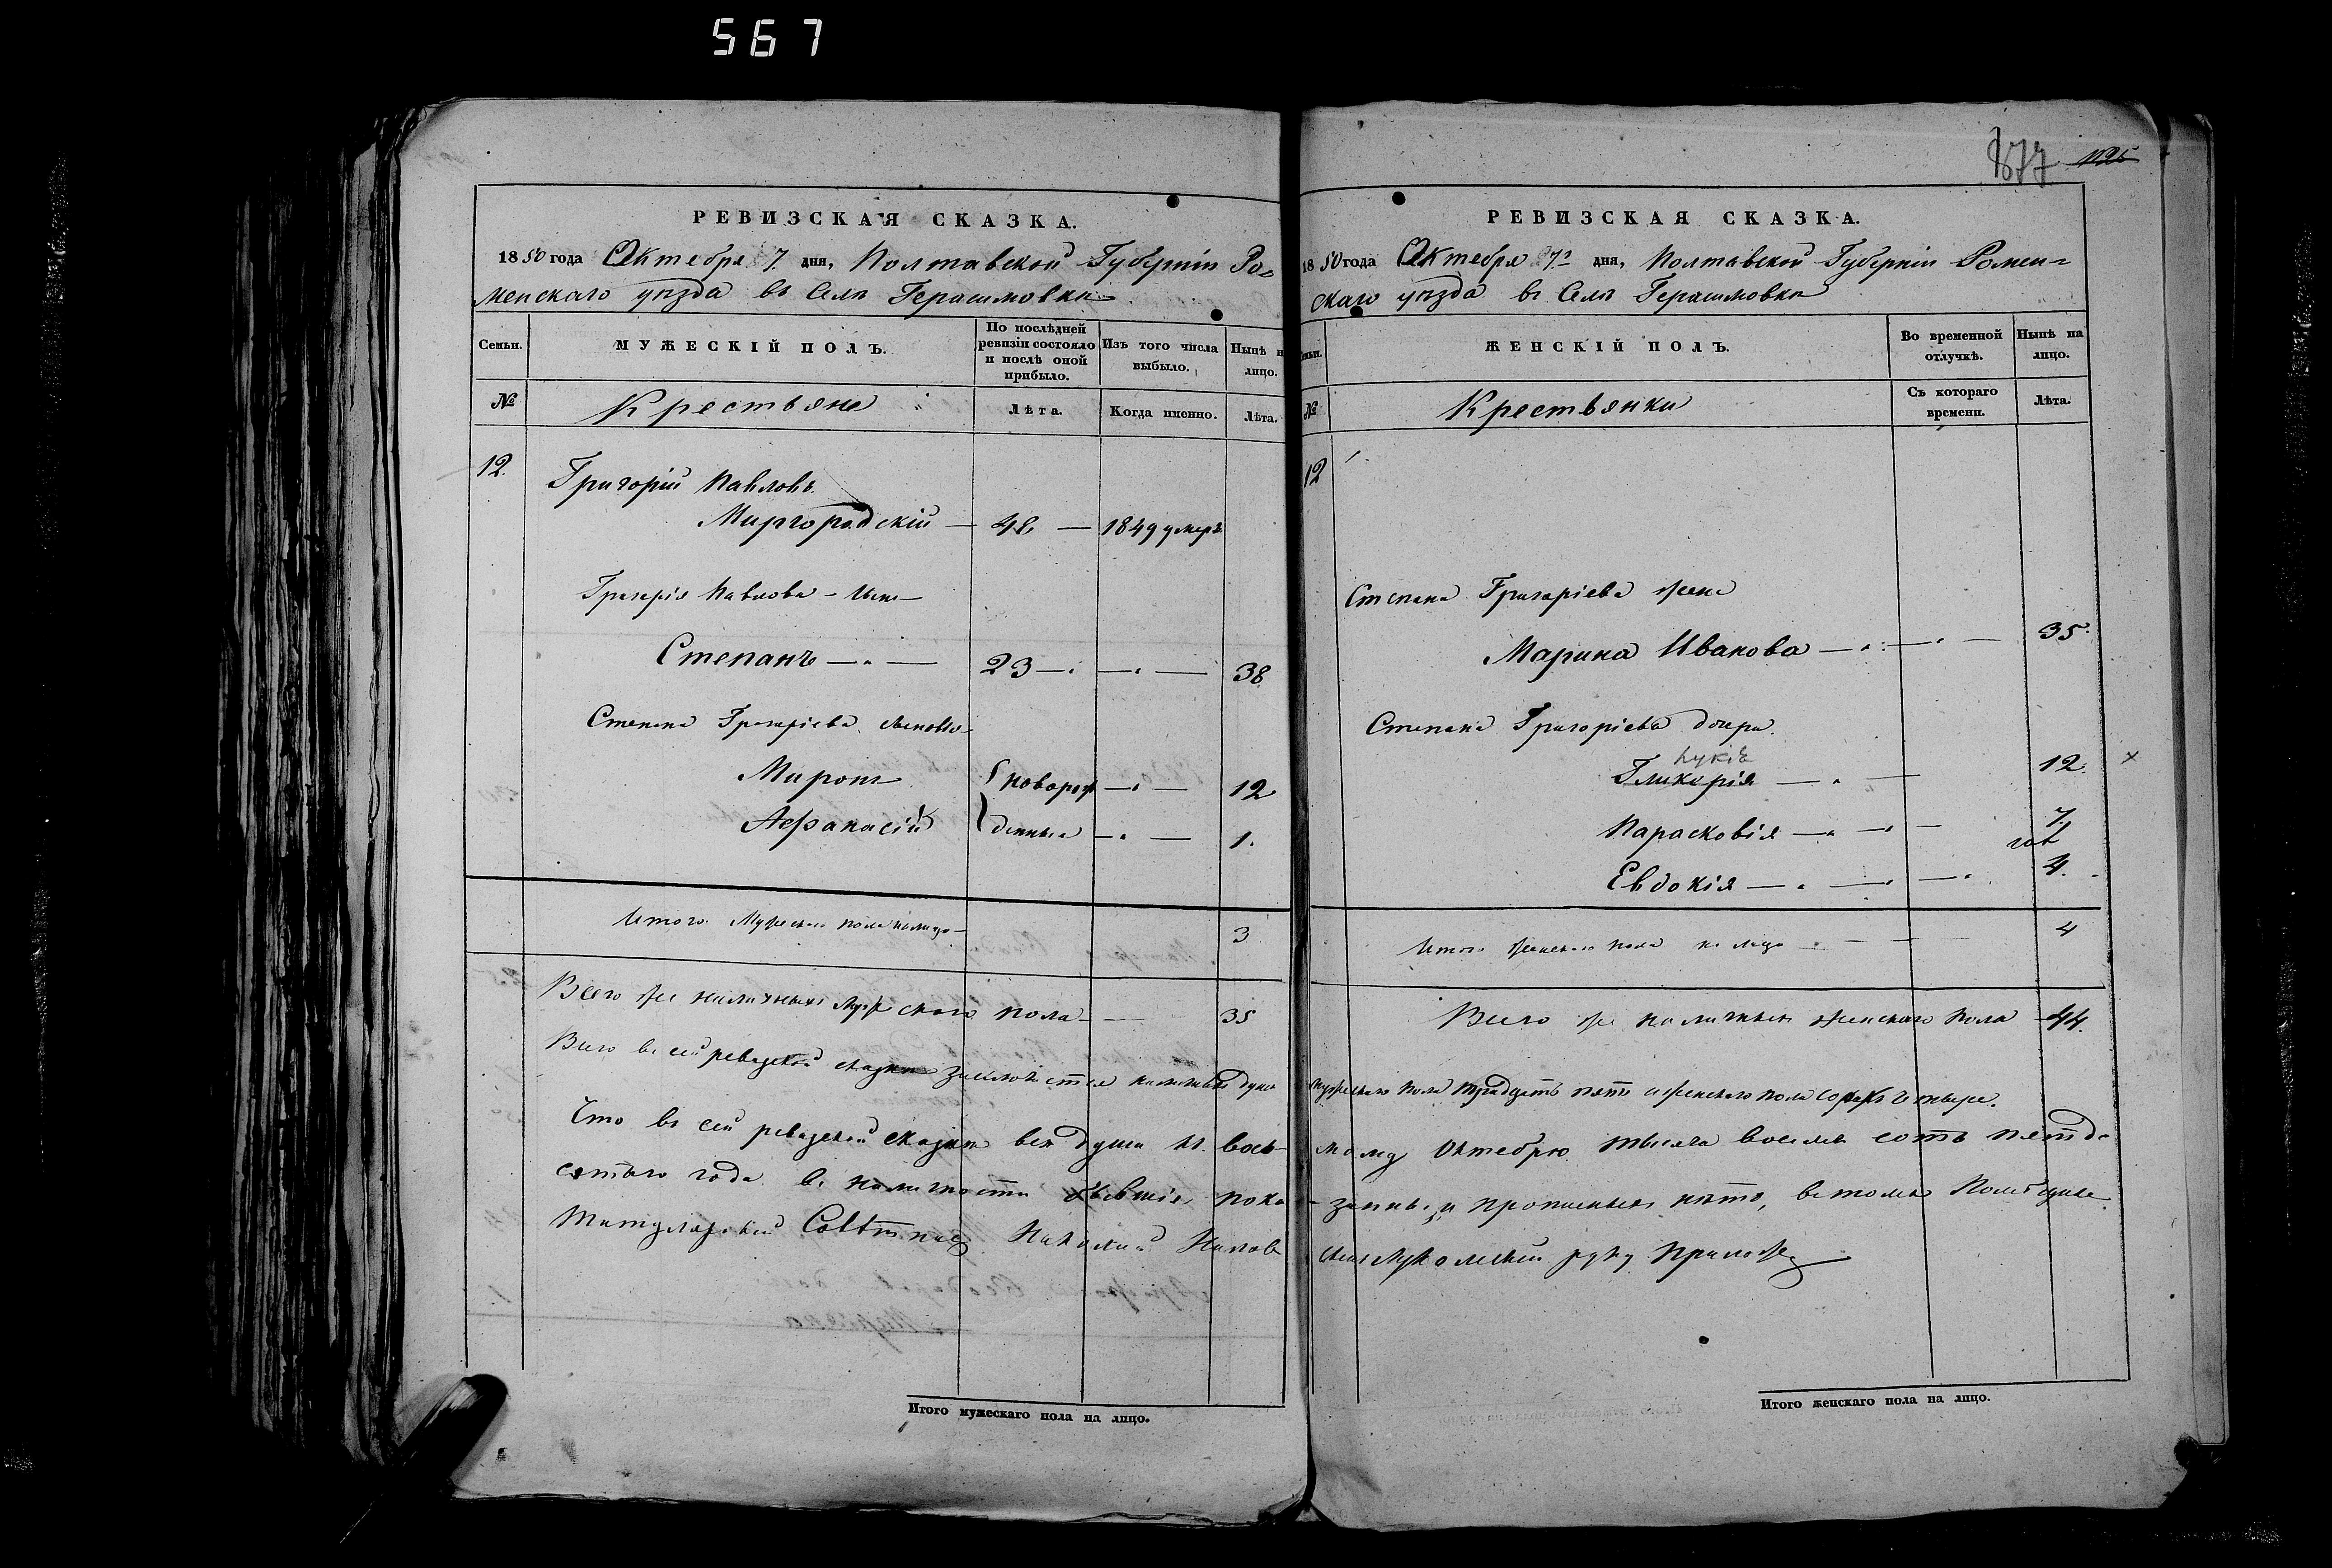 567
877 1125
РЕВИЗСКАЯ СКАЗКА.
1850 года Октября 7. дня, Полтавской Губерніи Ро=
менскаго уѣзда въ Селѣ Герашмовки
Семьи. МУЖЕСКІЙ ПОЛЪ. По послѣдней ревизіи состояло и послѣ оной прибыло. Изъ того числа выбыло. Нынѣ н лицо.
№ Крестьяне Лѣта. Когда именно. Лѣта.
12. Григорій Павловъ
Миргородскій — 48 — 1849 умеръ
Григорія Павлова —
Степанъ — 23 — — 38
Степана Григоріева сыновья
Миронъ новорож — 12
Афанасій денные — 1.
Итого Мужеска пола налицо — 3
Всего же наличныхъ мужскаго пола — 35
Всего въ сей ревизской сказкѣ заключается наличныхъ душъ
Что въ сей ревизской сказкѣ всѣ души къ вось-
сятаго года въ наличности бывшія пока
Титулярный Совѣтникъ Николай
Итого мужескаго пола на лицо.
РЕВИЗСКАЯ СКАЗКА.
1850 года Октября 7го дня, Полтавской Губерніи Ромен=
скаго уѣзда въ Селѣ Герашмовки
ЖЕНСКІЙ ПОЛЪ. Во временной отлучкѣ. Нынѣ на лицо.
№ Крестьянки Съ котораго времени. Лѣта.
12
Степана Григоріева жена
Марина Иванова — — 35.
Степана Григоріева дочери
Гликерія — 12. ×
Парасковія — — 7.
Евдокія — — 4.
Итого женскаго пола на лицо — 4
Всего же наличныхъ женскаго пола 44.
мужескаго пола тридцать пять и женскаго пола сорокъ четыре.
мому Октебрю тысяча восемь сотъ пятьде
заны, и прописныхъ нѣтъ, въ томъ
руку приложилъ
Итого женскаго пола на лицо.